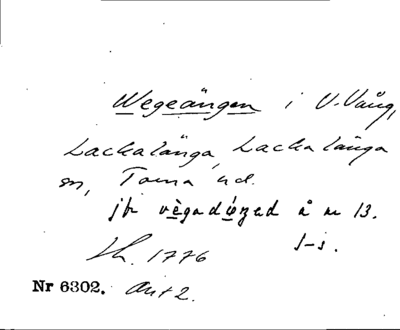 Wegeängen i V. Vång,
Lackalänga, Lackalänga
sn, Torna hd.
jfr vègadǿzed å n 13.
Sk. 1776 s-s.
Nr 6302. Ant 2.